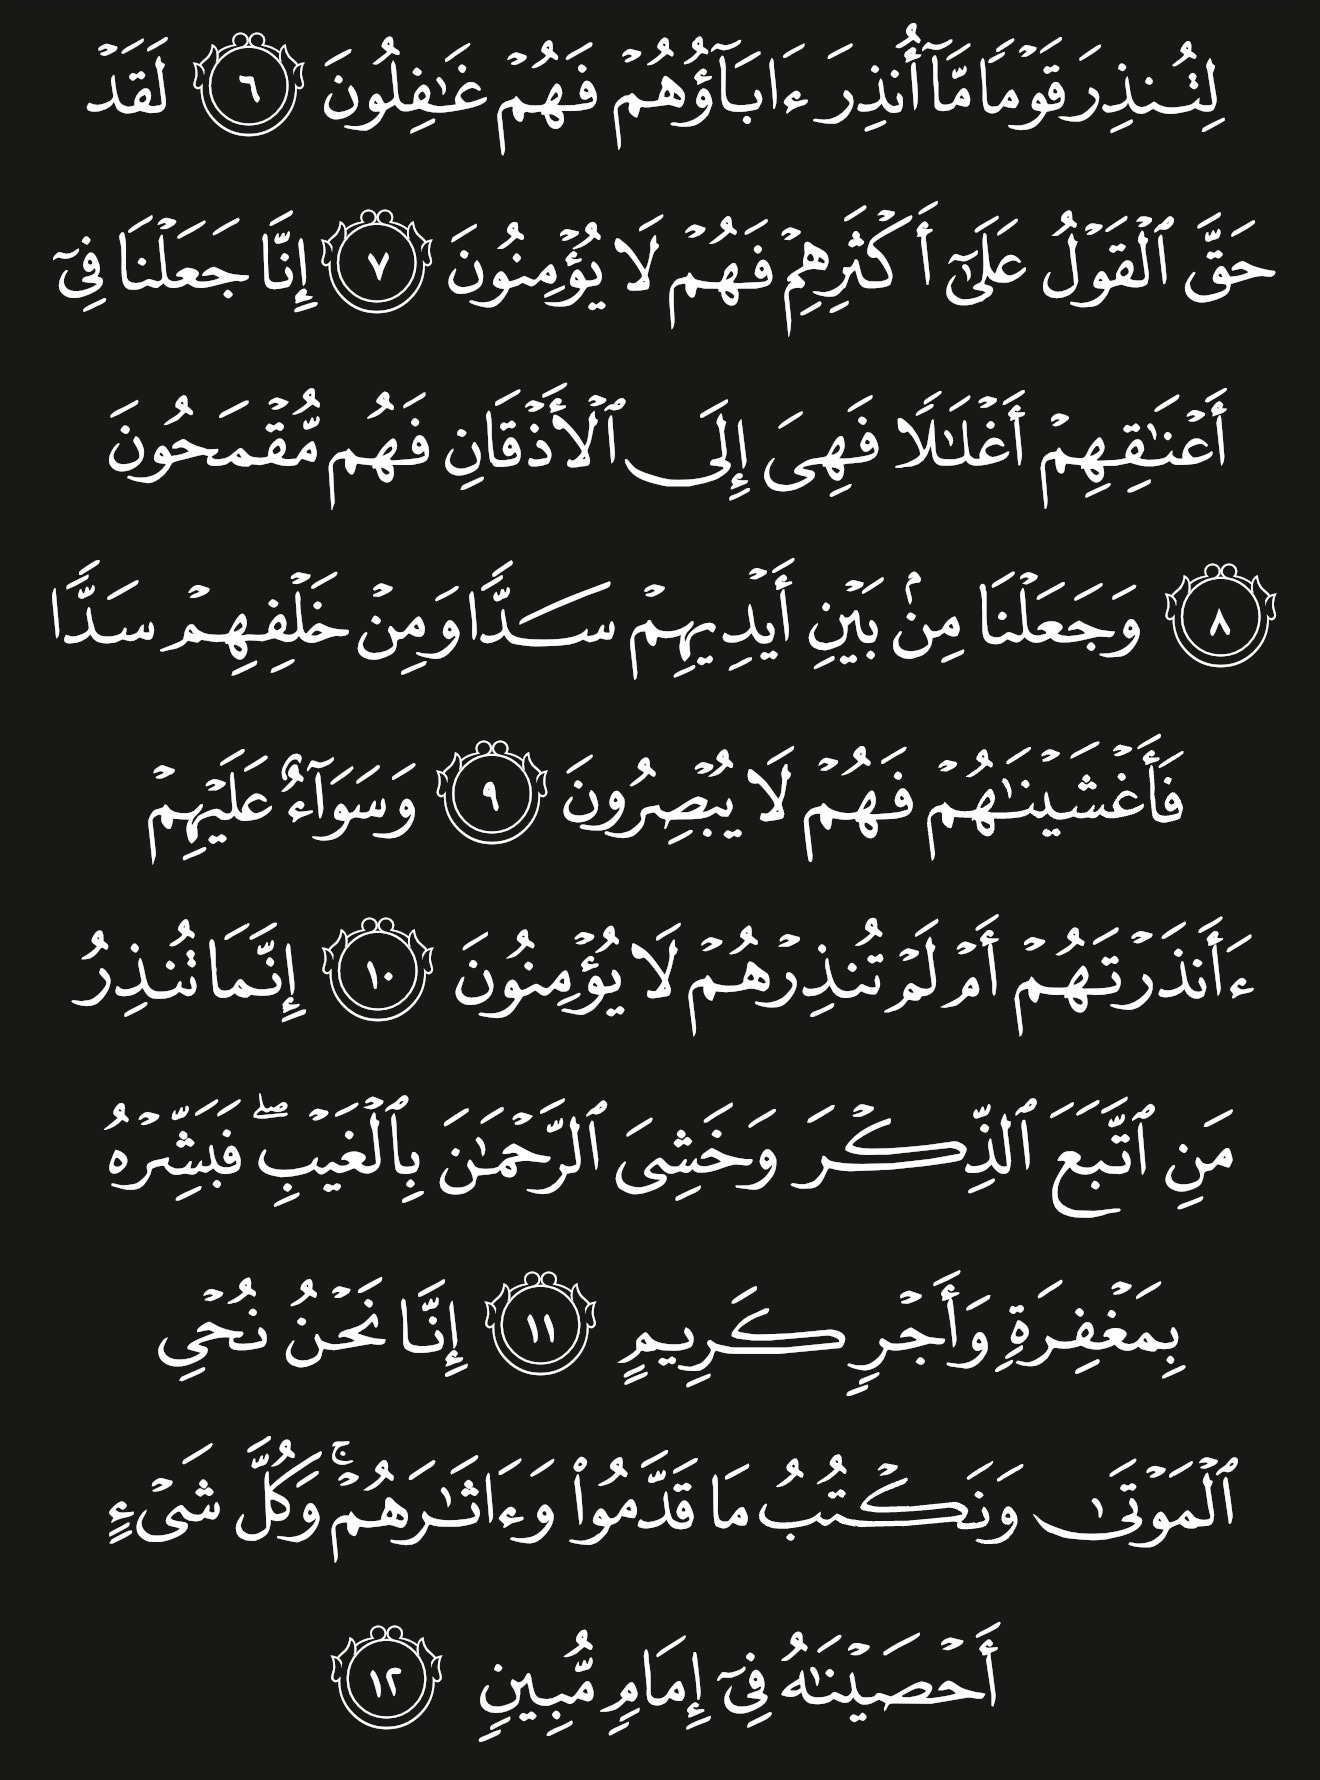 لِتُنذِرَ قَوْمًا مَّآ أُنذِرَ ءَابَآؤُهُمْ فَهُمْ غَٰفِلُونَ ٦ لَقَدْ
حَقَّ ٱلْقَوْلُ عَلَىٰٓ أَكْثَرِهِمْ فَهُمْ لَا يُؤْمِنُونَ ٧ إِنَّا جَعَلْنَا فِىٓ
أَعْنَٰقِهِمْ أَغْلَٰلًا فَهِىَ إِلَى ٱلْأَذْقَانِ فَهُم مُّقْمَحُونَ
٨ وَجَعَلْنَا مِنۢ بَيْنِ أَيْدِيهِمْ سَدًّا وَمِنْ خَلْفِهِمْ سَدًّا
فَأَغْشَيْنَٰهُمْ فَهُمْ لَا يُبْصِرُونَ ٩ وَسَوَآءٌ عَلَيْهِمْ
ءَأَنذَرْتَهُمْ أَمْ لَمْ تُنذِرْهُمْ لَا يُؤْمِنُونَ ١٠ إِنَّمَا تُنذِرُ
مَنِ ٱتَّبَعَ ٱلذِّكْرَ وَخَشِىَ ٱلرَّحْمَٰنَ بِٱلْغَيْبِ ۖ فَبَشِّرْهُ
بِمَغْفِرَةٍ وَأَجْرٍ كَرِيمٍ ١١ إِنَّا نَحْنُ نُحْىِ
ٱلْمَوْتَىٰ وَنَكْتُبُ مَا قَدَّمُوا۟ وَءَاثَٰرَهُمْ ۚ وَكُلَّ شَىْءٍ
أَحْصَيْنَٰهُ فِىٓ إِمَامٍ مُّبِينٍ ١٢